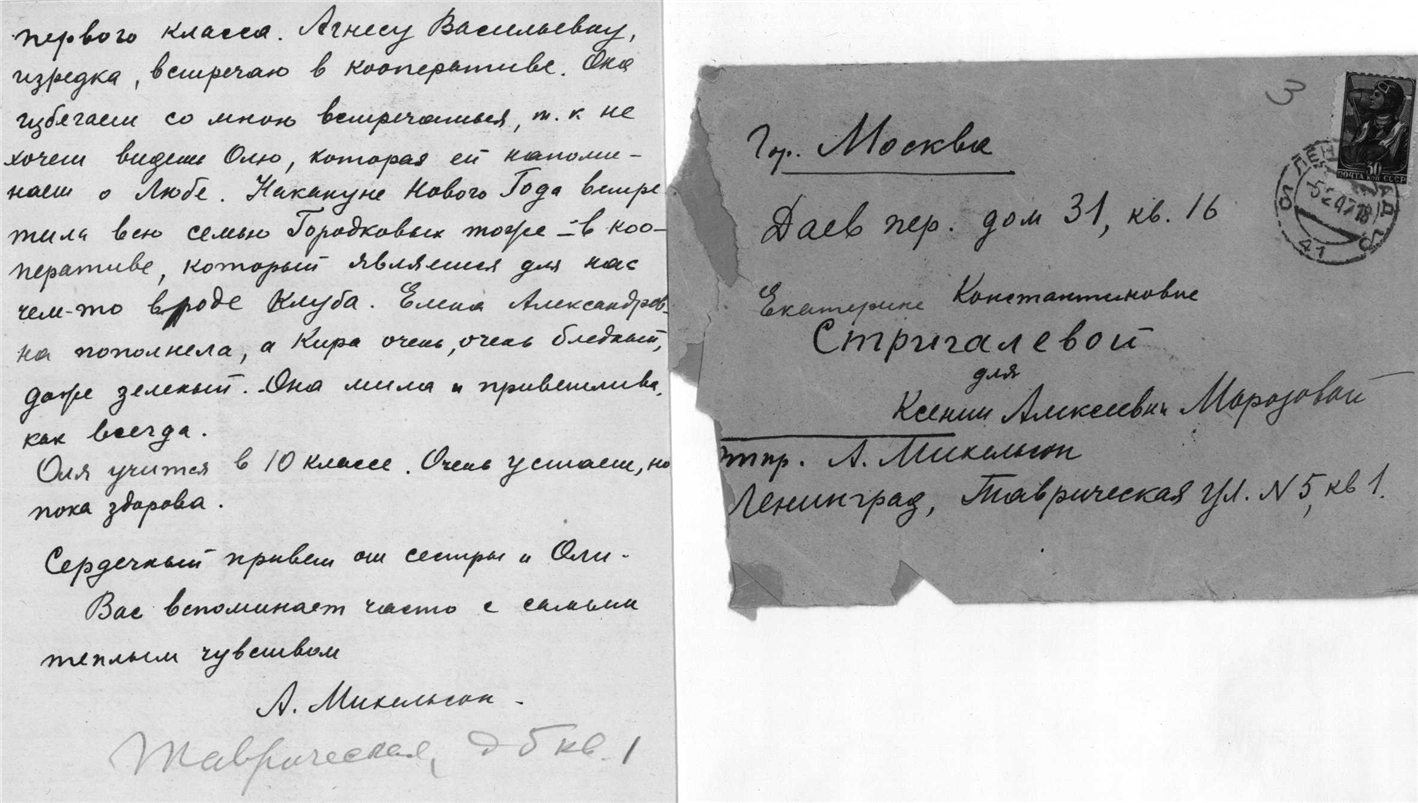 первого класса. Агнесу Васильевну,
изредка, встречаю в кооперативе. Она
избегает со мною встречаться, т. к не
хочет видеть Олю, которая ей напоми-
нает о Любе. Накануне Нового Года встре
тила всю семью Городковых тоже – в коо-
перативе, который является для нас
чем-то вроде Клуба. Елена Александров-
на пополнела, а Кира очень, очень бледный,
даже зеленый. Она мила и приветлива,
как всегда.
Оля учится в 10 классе. Очень устает, но
пока здорова.
Сердечный привет от сестры и Оли.
Вас вспоминает часто с самым
теплым чувством
А. Микельсон.
Таврическая, д 5 кв. 1
3
Гор. Москва
Даев пер. дом 31, кв. 16
Екатерине Константиновне
Стригалевой
для
Ксении Алексеевны Морозовой
отпр. А. Микельсон
Ленинград, Таврическая ул. N 5, кв 1.
30
ПОЧТА СССР
41